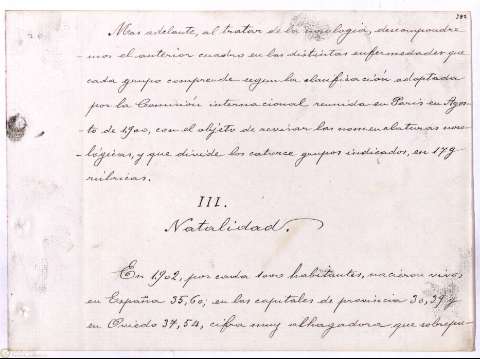 Mas adelante, al tratar de la nosologia, descompondre-
-mos el anterior cuadro en las distintas enfermedades que
cada grupo comprende segun la clasificación adoptada
por la Comisión internacional reunida en Paris en Agos-
-to de 1900, con el objeto de revisar las nomenclaturas noso-
-lógicas, y que divide los catorce grupos indicados, en 179
rúbricas.
III.
Natalidad.
En 1902, por cada 1000 habitantes, nacieron vivos,
en España 35,60; en las capitales de provincia 30,39 y
en Oviedo 37,54, cifra muy alhagadora que sobrepu-